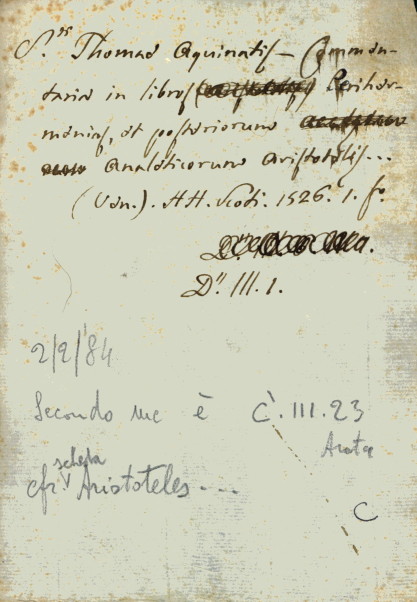 S.ti Thomae Aquinatis – Commen-
taria in libros Perihar-
menias, et posteriorum
Analoticorum Aristotelis...
(Ven.). HH. Scoti. 1526. 1. fo.
D." III. 1.
2/2/'84
Secondo me è C'.III.23
Arota
cfr scheda Aristoteles ...
C